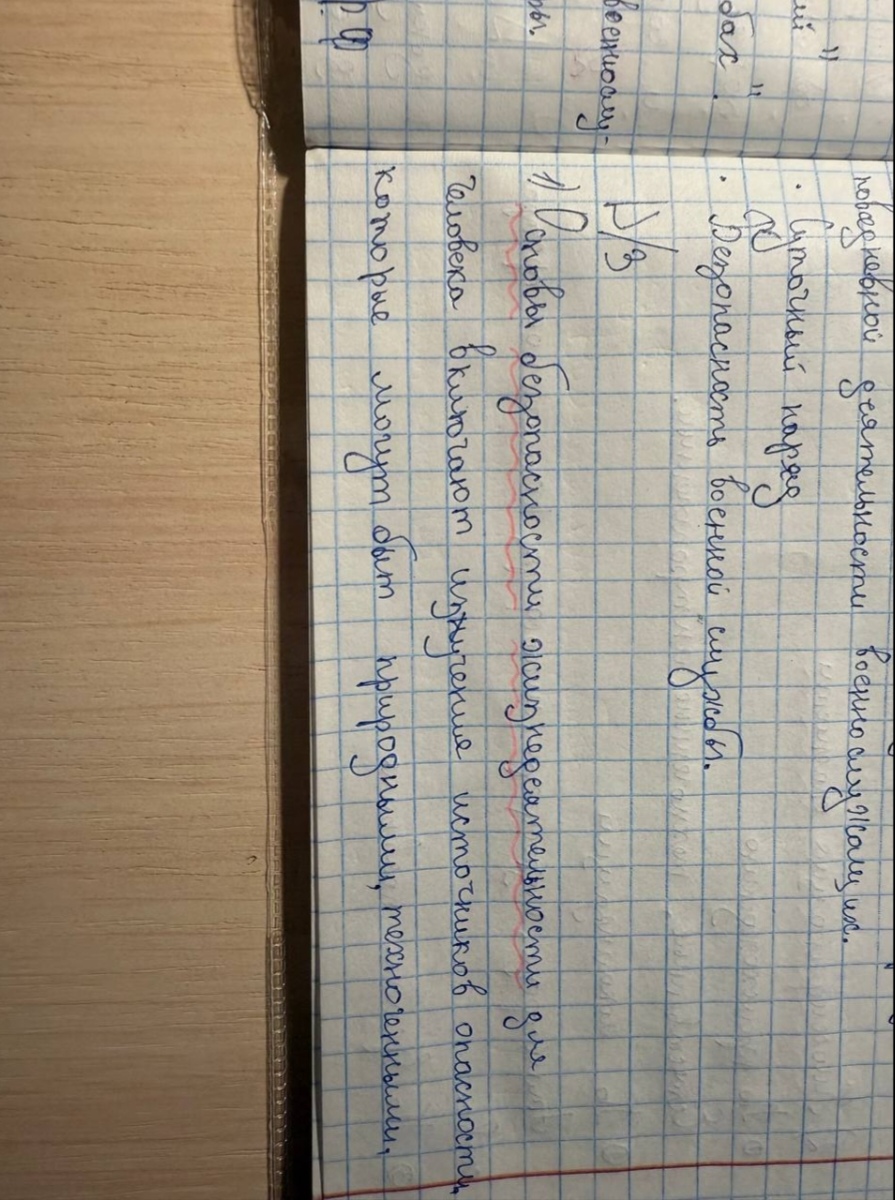 ий"
бах".
военнослу-
ры.
РФ
повседневной деятельности военнослужащих.
· Суточный наряд
· Безопасность военной службы.
Д/З
1) Основы безопасности жизнедеятельности для
человека включают изучения источников опасности,
которые могут быт природными, техногенными,